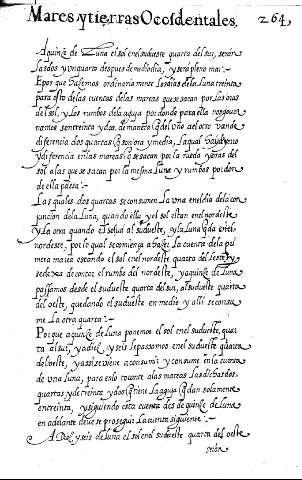 Mares, y tierras Ocçidentales. 264
A quinze de Luna el sol en el sudueste quarta del sur, seran
las dos y un quarto despues de mediodia, y sera pleno mar:~
E por que hazemos ordinariamente los dias de la Luna treinta
para esto de las cuentas de las mareas que se sacan por las oras
del sol, y los rumbos del aguja por donde para ello nos gouer
namos son treinta y dos, de manera que del uno al otro van de
diferencia dos quartas que son ora y media, la qual
y diferencia en las mareas que se sacan por la rueda y oras del
sol a las que se sacan por la mesma Luna y rumbos por don
de ella passa:~
Las quales dos quartas se consumen La una en el dia de la con
juncion de la Luna, quando ella y el sol estan en el nordeste
y La otra quando el sol va al sudueste, y la Luna
nordeste, por lo qual se comiença a hazer la cuenta de la pri
mera marea estando el sol en el nordeste quarta del leste, y
se dexa de contar el rumbo del nordeste, y a quinze de Luna
passamos desde el sudueste quarta del sur, al sudueste quarta
del oeste, quedando el sudueste en medio y alli se consu
me La otra quarta:~
Porque a quinze de Luna ponemos el sol en el sudueste, quar
ta al sur, y a diez y seis le passamos en el sudueste quarta
del oeste, y assi se viene a consumir y consume en la cuenta
de una Luna, para en lo tocante a las mareas las dichas dos
quartas y de treinta y dos que tiene la aguja quedan solamen
en treinta, y siguiendo esta cuenta des de quinze de luna
en adelante deue se proseguir La cuenta siguiente:~
A Diez y seis de luna el sol en el sudueste quarta del oeste
seran